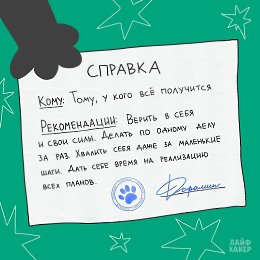 СПРАВКА
Кому: Тому, у кого всё получится
Рекомендации: Верить в себя
и свои силы. Делать по одному делу
за раз. Хвалить себя даже за маленькие
шаги. Дать себе время на реализацию
всех планов.
ЛАЙФ
ХАКЕР